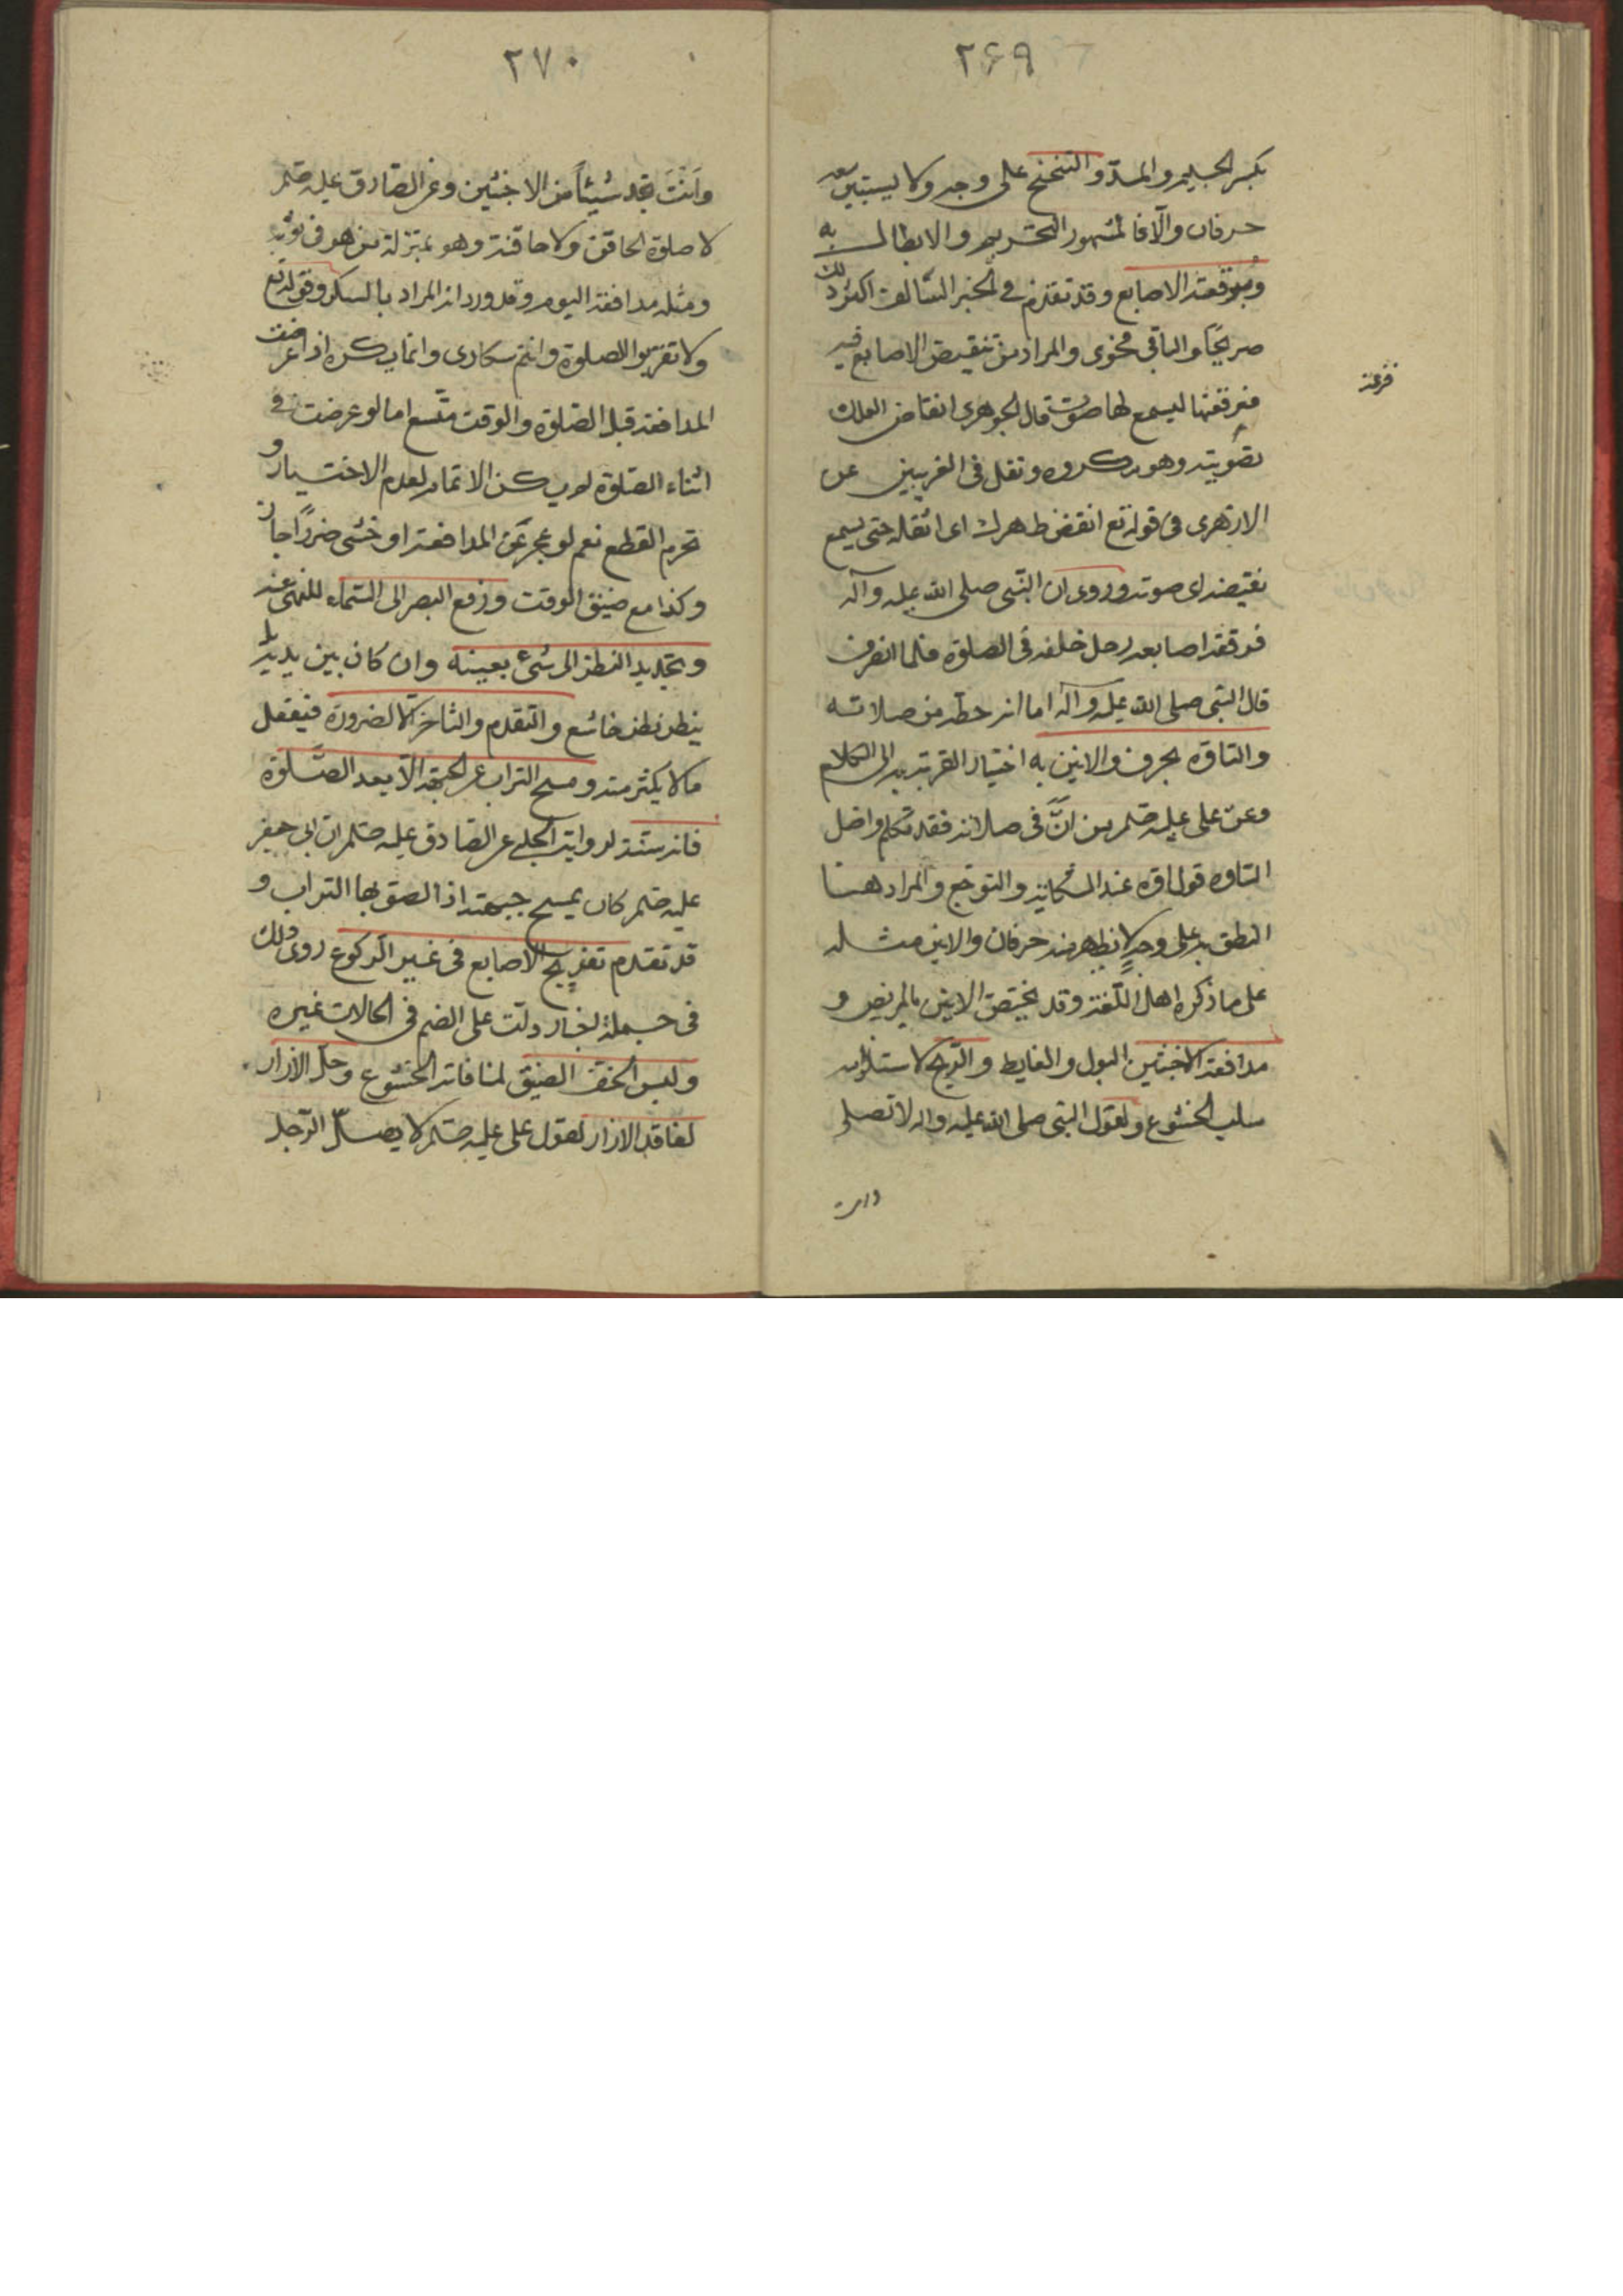 ٢۶٩
بكسر الجيم والمد والتنحنح على وجه لا يستبين معه
حرفان والا فالمشهور التحريم والابطال به
وفرقعة الاصابع وقد تقدم في الخبر السالف اكثر ذلك
صريحا والباقي فحوى والمراد من تنقيض الاصابع فيه
فرقعة
فرقعتها ليسمع لها صوت قال الجوهرى انقاض العلك
تصويته وهو مكروه ونقل في الغريبين عن
الازهرى في قوله تع انقض ظهرك اى اثقله حتى يسمع
نقيضه اى صوته وروى ان النبي صلى الله عليه وآله
فرقعة اصابعه رجل خلفه في الصلوة فلما انصرف
قال النبي صلى الله عليه وآله اما انه حظه من صلاته
والتاوه بحرف والانين به اختيارا لقربته به الى الكلام
وعن على عليه صلم من انّ في صلاته فقد تكلم واصل
التاوه قول اوه عند الشكاية والتوجع والمراد هنا
النطق به على وجه لا يظهر منه حرفان والانين مثله
على ما ذكره اهل اللغة وقد يختص الانين بالمريض و
مدافعة الاخبثين البول والغايط والريح لاستلزامه
سلب الخشوع ولقول النبي صلى الله عليه واله لا تصلى
وانت
٢٧٠
وانت تجد شيئا من الاخبثين وعن الصادق عليه صلم
لا صلوة لحاقن ولا حاقنة وهو بمنزلة من هو في ثوبه
ومثله مدافعة النوم وقد ورد انه المراد بالسكر وقوله تع
ولا تقربوا الصلوة وانتم سكارى وانما يكره اذا عرضت
المدافعة قبل الصلوة والوقت متسع اما لو عرضت في
اثناء الصلوة لم يكره الاتمام لعدم الاختيار و
تحرم القطع نعم لو عجز عن المدافعة او خشى ضررا جاز
وكذا مع ضيق الوقت ورفع البصر الى السماء للنهى عنه
وتحديد النظر الى شئ بعينه وان كان بين يديه بل
ينظر نظر خاشع والتقدم والتاخر الا لضرورة فيفعل
ما لا يكثر منه ومسح التراب عن الجبهة الا بعد الصلوة
فانه سنة لرواية الحلبي عن الصادق عليه صلم ان ابى جعفر
عليه صلم كان يمسح جبهته اذا لصق بها التراب و
قد تقدم تفريج الاصابع في غير الركوع روى ذلك
في جملة اخبار دلت على الضم في الحالات غيره
ولبس الخف الضيق لمنافاته الخشوع وحل الازرار
لفاقد الازار لقول على عليه صلم لا يصلّ الرجل